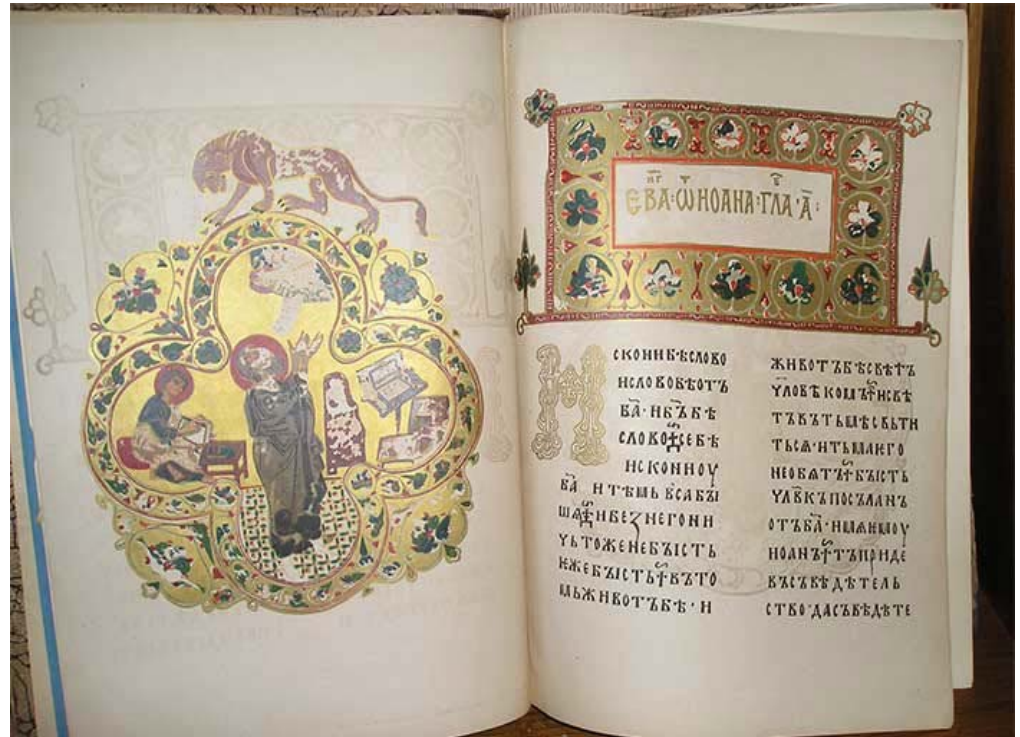 ЕВА҃НГ·Ѿ НОАНА·ГЛА·А҃:
ИСКОНИБѢСЛОВО
ИСЛОВОБѢОТЪ
БА҃·ИБЪ҃БѢ
СЛОВО СЕБѢ
ИСКОНИОУ
БА҃ ИТѢМЬВЬСАБЫ
ШѦ ИБЕЗНЕГОНИ
ЧЬТОЖЕНЕБЫСТЬ
ИЖЕБЫСТЬ ВЪТО
МЬЖИВОТЪБѢ·И
ЖИВОТЪБѢСВѢТЪ
ЧЛОВѢКОМЪ ИСВѢ
ТЪВЪТЬМѢСВЬТИ
ТЬСѦ·ИТЬМАѤГО
НЕОБѦТЪ БЫСТЬ
ЧЛВ҃КЪПОСЪЛАНЪ
ОТЪБА҃·ИМѦѤМОУ
ИОАНЪ ТЪПРИДЕ
ВЪСЪВѢДѢТЕЛЬ
СТВО·ДАСЪВѢДѢТЕ